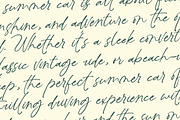 summer car is all about fun
nshine, and adventure on the o
d. Whether it's a sleek convert
lassic vintage ride, or a beach-
ep, the perfect summer car of
iling driving experience wit
and the sun on